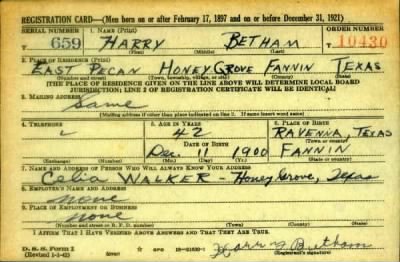 REGISTRATION CARD—(Men born on or after February 17, 1897 and on or before December 31, 1921)
SERIAL NUMBER 1. NAME (Print) ORDER NUMBER
659 HARRY BETHAM 10430
(First) (Middle) (Last)
2. PLACE OF RESIDENCE (Print)
EAST PECAN HONEY GROVE FANNIN TEXAS
(Number and street) (Town, township, village, or city) (County) (State)
[THE PLACE OF RESIDENCE GIVEN ON THE LINE ABOVE WILL DETERMINE LOCAL BOARD
JURISDICTION; LINE 2 OF REGISTRATION CERTIFICATE WILL BE IDENTICAL]
3. MAILING ADDRESS
Same
[Mailing address if other than place indicated on line 2. If same insert word same]
4. TELEPHONE 5. AGE IN YEARS 6. PLACE OF BIRTH
42 RAVENNA, TEXAS
DATE OF BIRTH (Town or county)
Dec. 11 1900 FANNIN
(Exchange) (Number) (Mo.) (Day) (Yr.) (State or country)
7. NAME AND ADDRESS OF PERSON WHO WILL ALWAYS KNOW YOUR ADDRESS
Celia WALKER - Honey Grove, Texas
8. EMPLOYER'S NAME AND ADDRESS
none
9. PLACE OF EMPLOYMENT OR BUSINESS
none
(Number and street or R. F. D. number) (Town) (County) (State)
I AFFIRM THAT I HAVE VERIFIED ABOVE ANSWERS AND THAT THEY ARE TRUE.
D. S. S. Form 1
(Revised 1-1-42) GPO Harry Betham
(Registrant's signature)